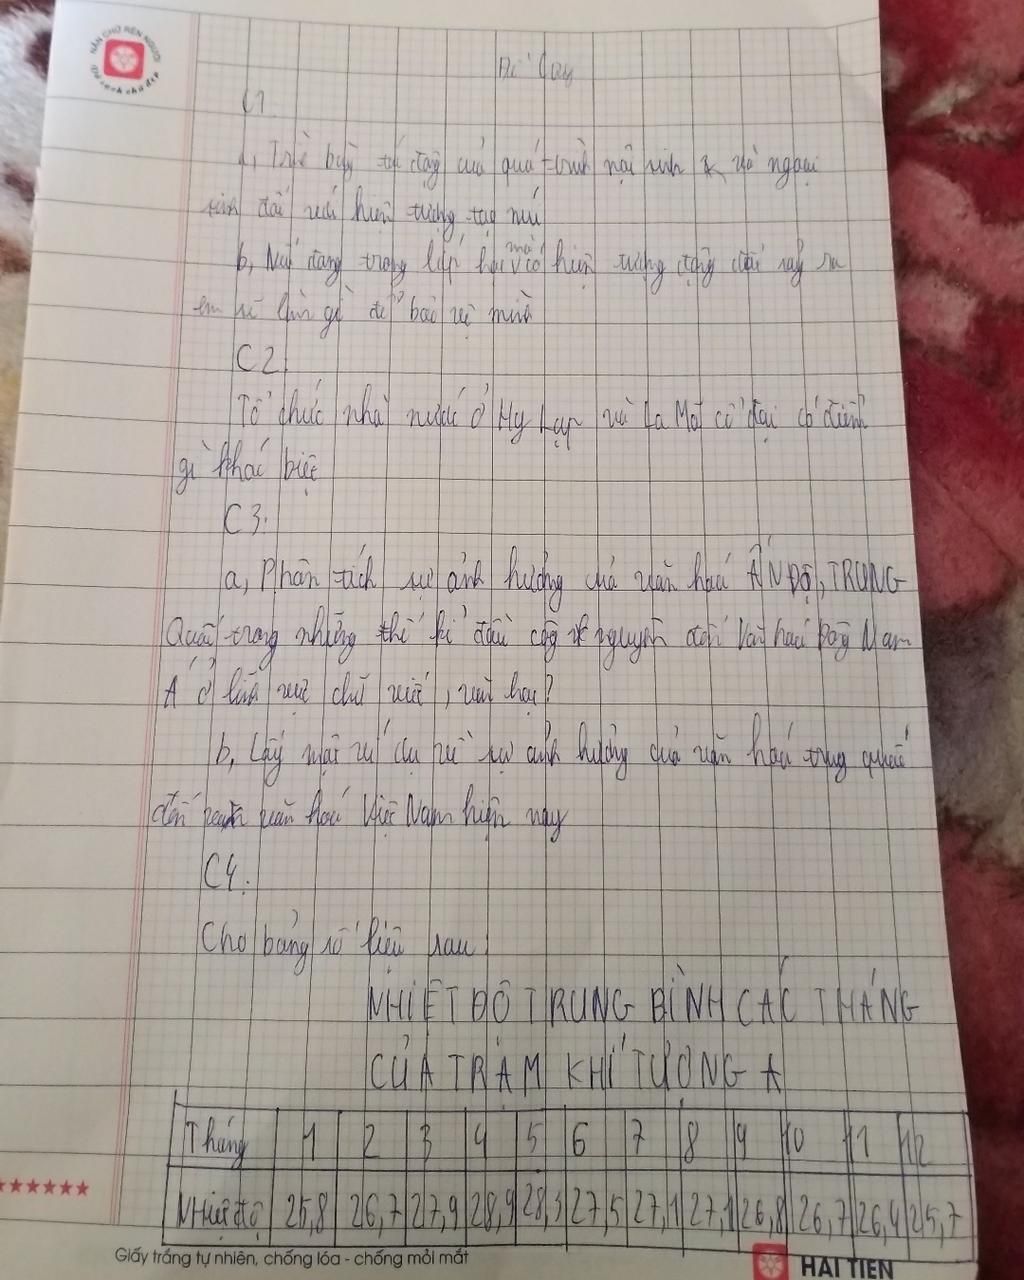 NẮN CHỮ RÈN NGƯỜI
Đề Cạy
C1
a, Trình bày tác động của quá trình nội sinh và ngoại
sinh đối với hiện tượng tạo núi
b, Nếu đang trong lớp học mà có hiện tượng động đất xảy ra
em sẽ làm gì để bảo vệ mình
C2
Tổ chức nhà nước ở Hy Lạp và La Mã cổ đại có điểm
gì khác biệt
C3.
a, Phân tích sự ảnh hưởng của văn hoá ẤN ĐỘ, TRUNG
Quốc trong những thế kỉ đầu công nguyên đến Văn hoá Đông Nam
Á ở lĩnh vực chữ viết, văn học?
b, Lấy một ví dụ về sự ảnh hưởng của văn hoá trung quốc
đến văn hoá Việt Nam hiện nay
C4.
Cho bảng số liệu sau
NHIỆT ĐỘ TRUNG BÌNH CÁC THÁNG
CỦA TRẠM KHÍ TƯỢNG A
Tháng 1 2 3 4 5 6 7 8 9 10 11 12
Nhiệt độ 25,8 26,7 27,9 28,9 28,3 27,5 27,1 27,1 26,8 26,7 26,4 25,7
Giấy trắng tự nhiên, chống lóa - chống mỏi mắt
HẢI TIẾN